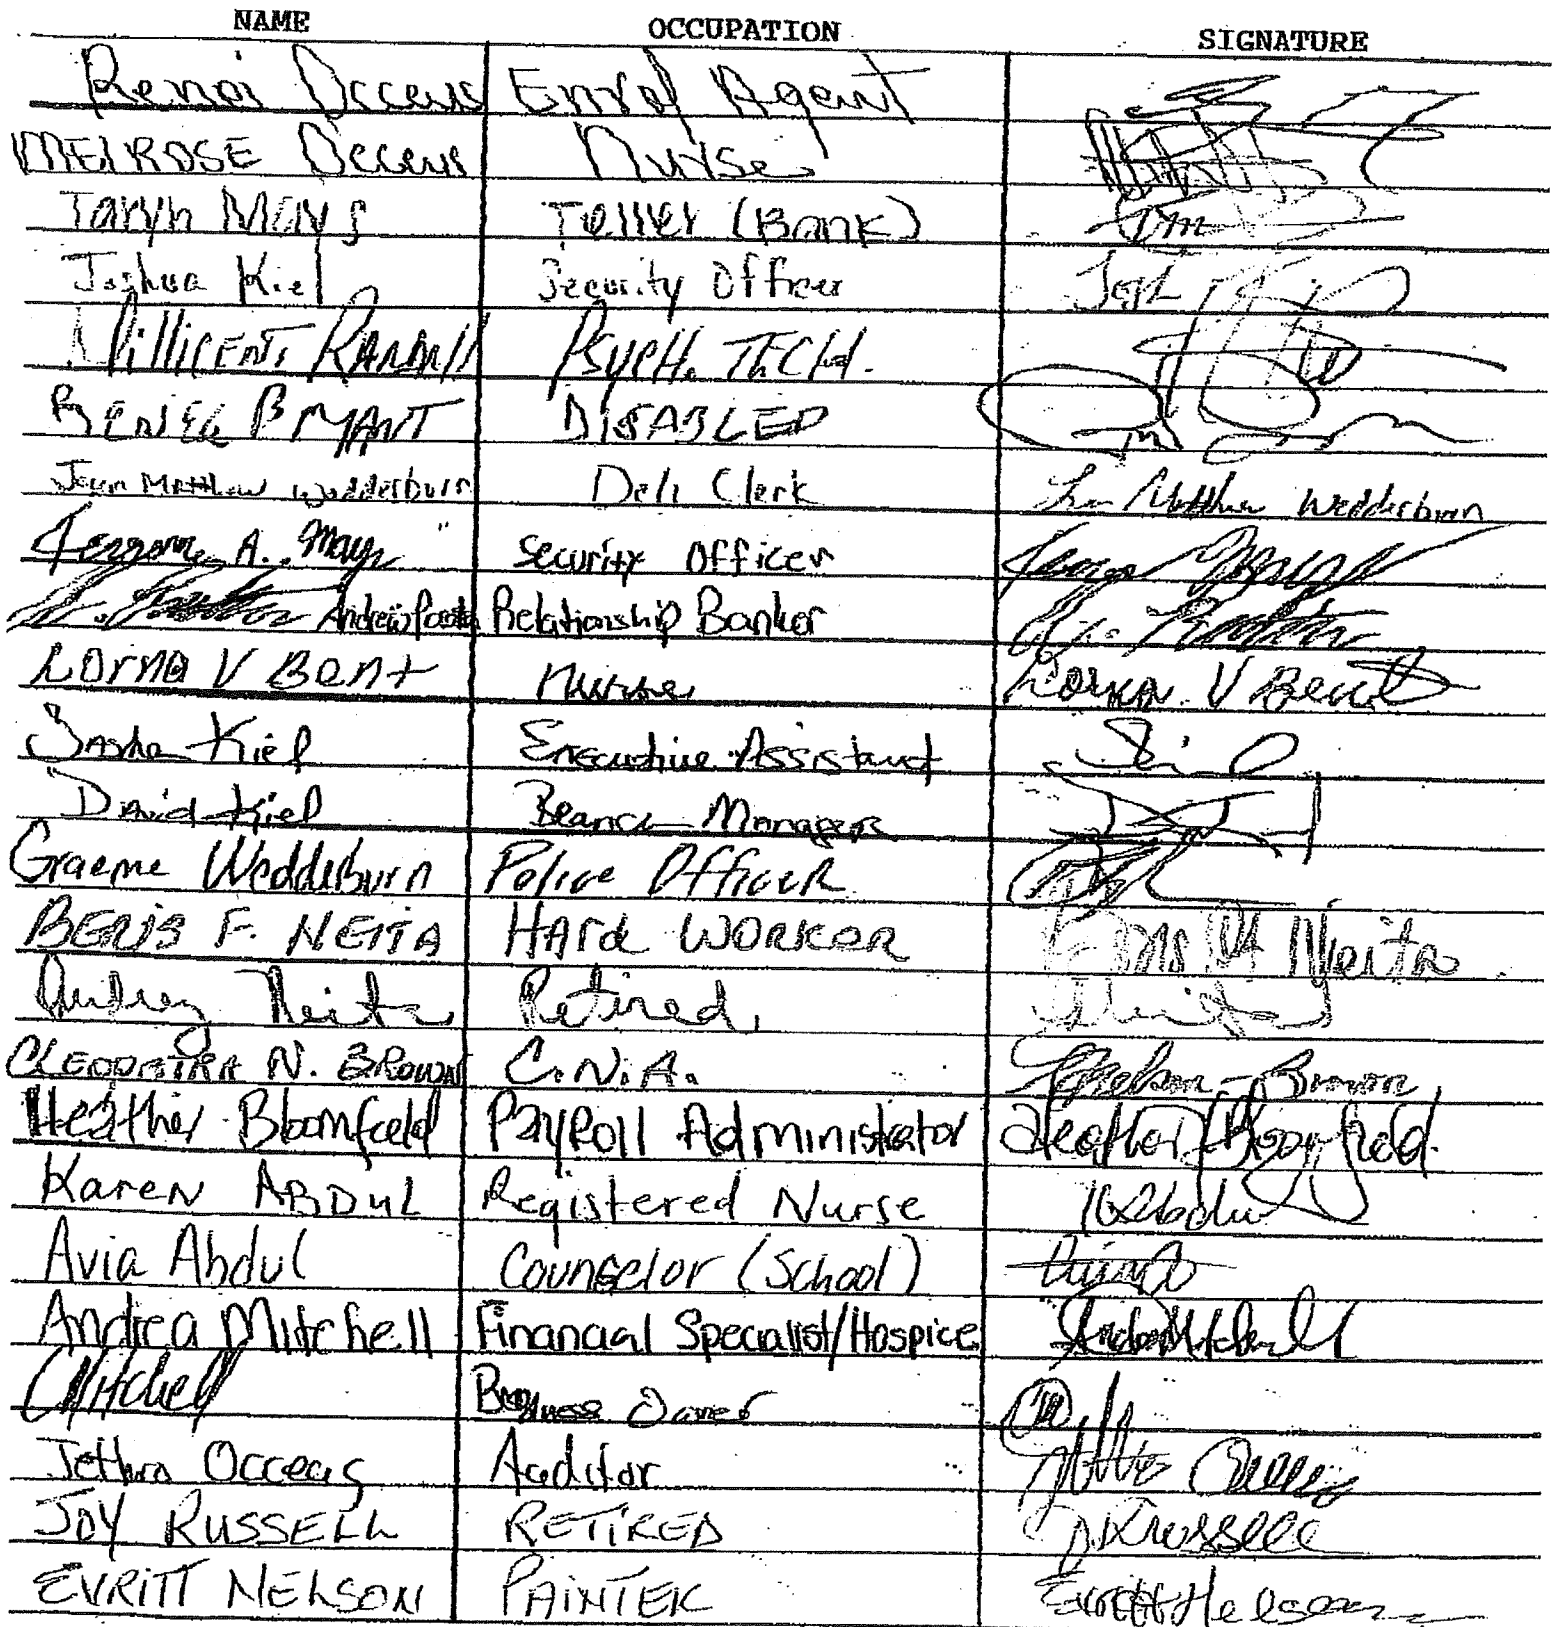 NAME OCCUPATION SIGNATURE
Renoi Occeus Enrol Agent
MELROSE Occeus Nurse
Taryn Mays Teller (Bank)
Joshua Kiel Security Officer Josh
Millicent Randall Psych. Tech.
RENEE BRYANT DISABLED
Matthew Wedderburn Deli Clerk Matthew Wedderburn
A. Mays Security Officer
Andrew Relationship Banker
Lorna V Bent Nurse Lorna V Bent
Sasha Kiel Executive Assistant
David Kiel Branch Manager
Graeme Wedderburn Police Officer
BERIS F. NEITA HARd WORKER Neita
Audrey Neita Retired
CLEOPATRA N. BROWN C.N.A. Brown
Heather Bloomfield Payroll Administrator Heather Bloomfield
Karen ABDUL Registered Nurse KAbdul
Avia Abdul Counselor (School)
Andrea Mitchell Financial Specialist/Hospice Andrea Mitchell
CMitchell Business Owner
Jethro Occeus Auditor
JOY RUSSELL RETIRED Russell
EVRITT NELSON PAINTER Evritt Nelson